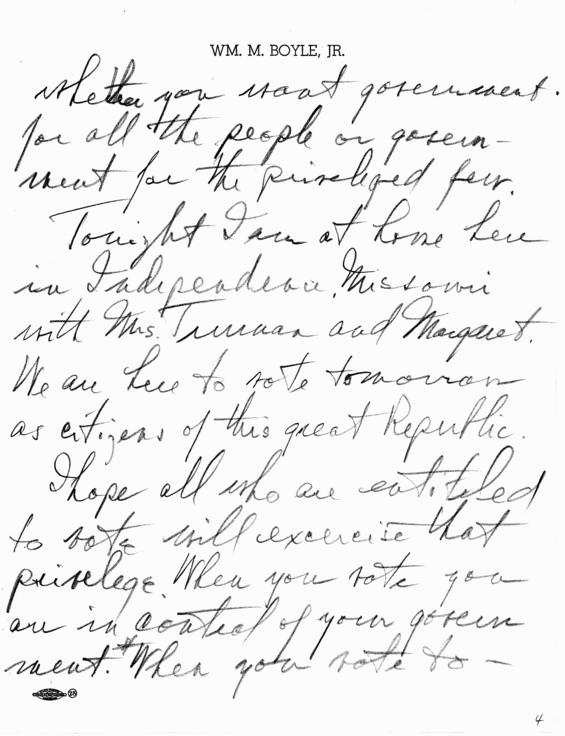 WM. M. BOYLE, JR.
whether you want government
for all the people or govern-
ment for the privileged few.
Tonight I am at home here
in Independence, Missouri
with Mrs. Truman and Margaret.
We are here to vote tomorrow
as citizens of this great Republic.
I hope all who are entitled
to vote will excercise that
privelege. When you vote you
are in control of your govern
ment. # When you vote to —
4